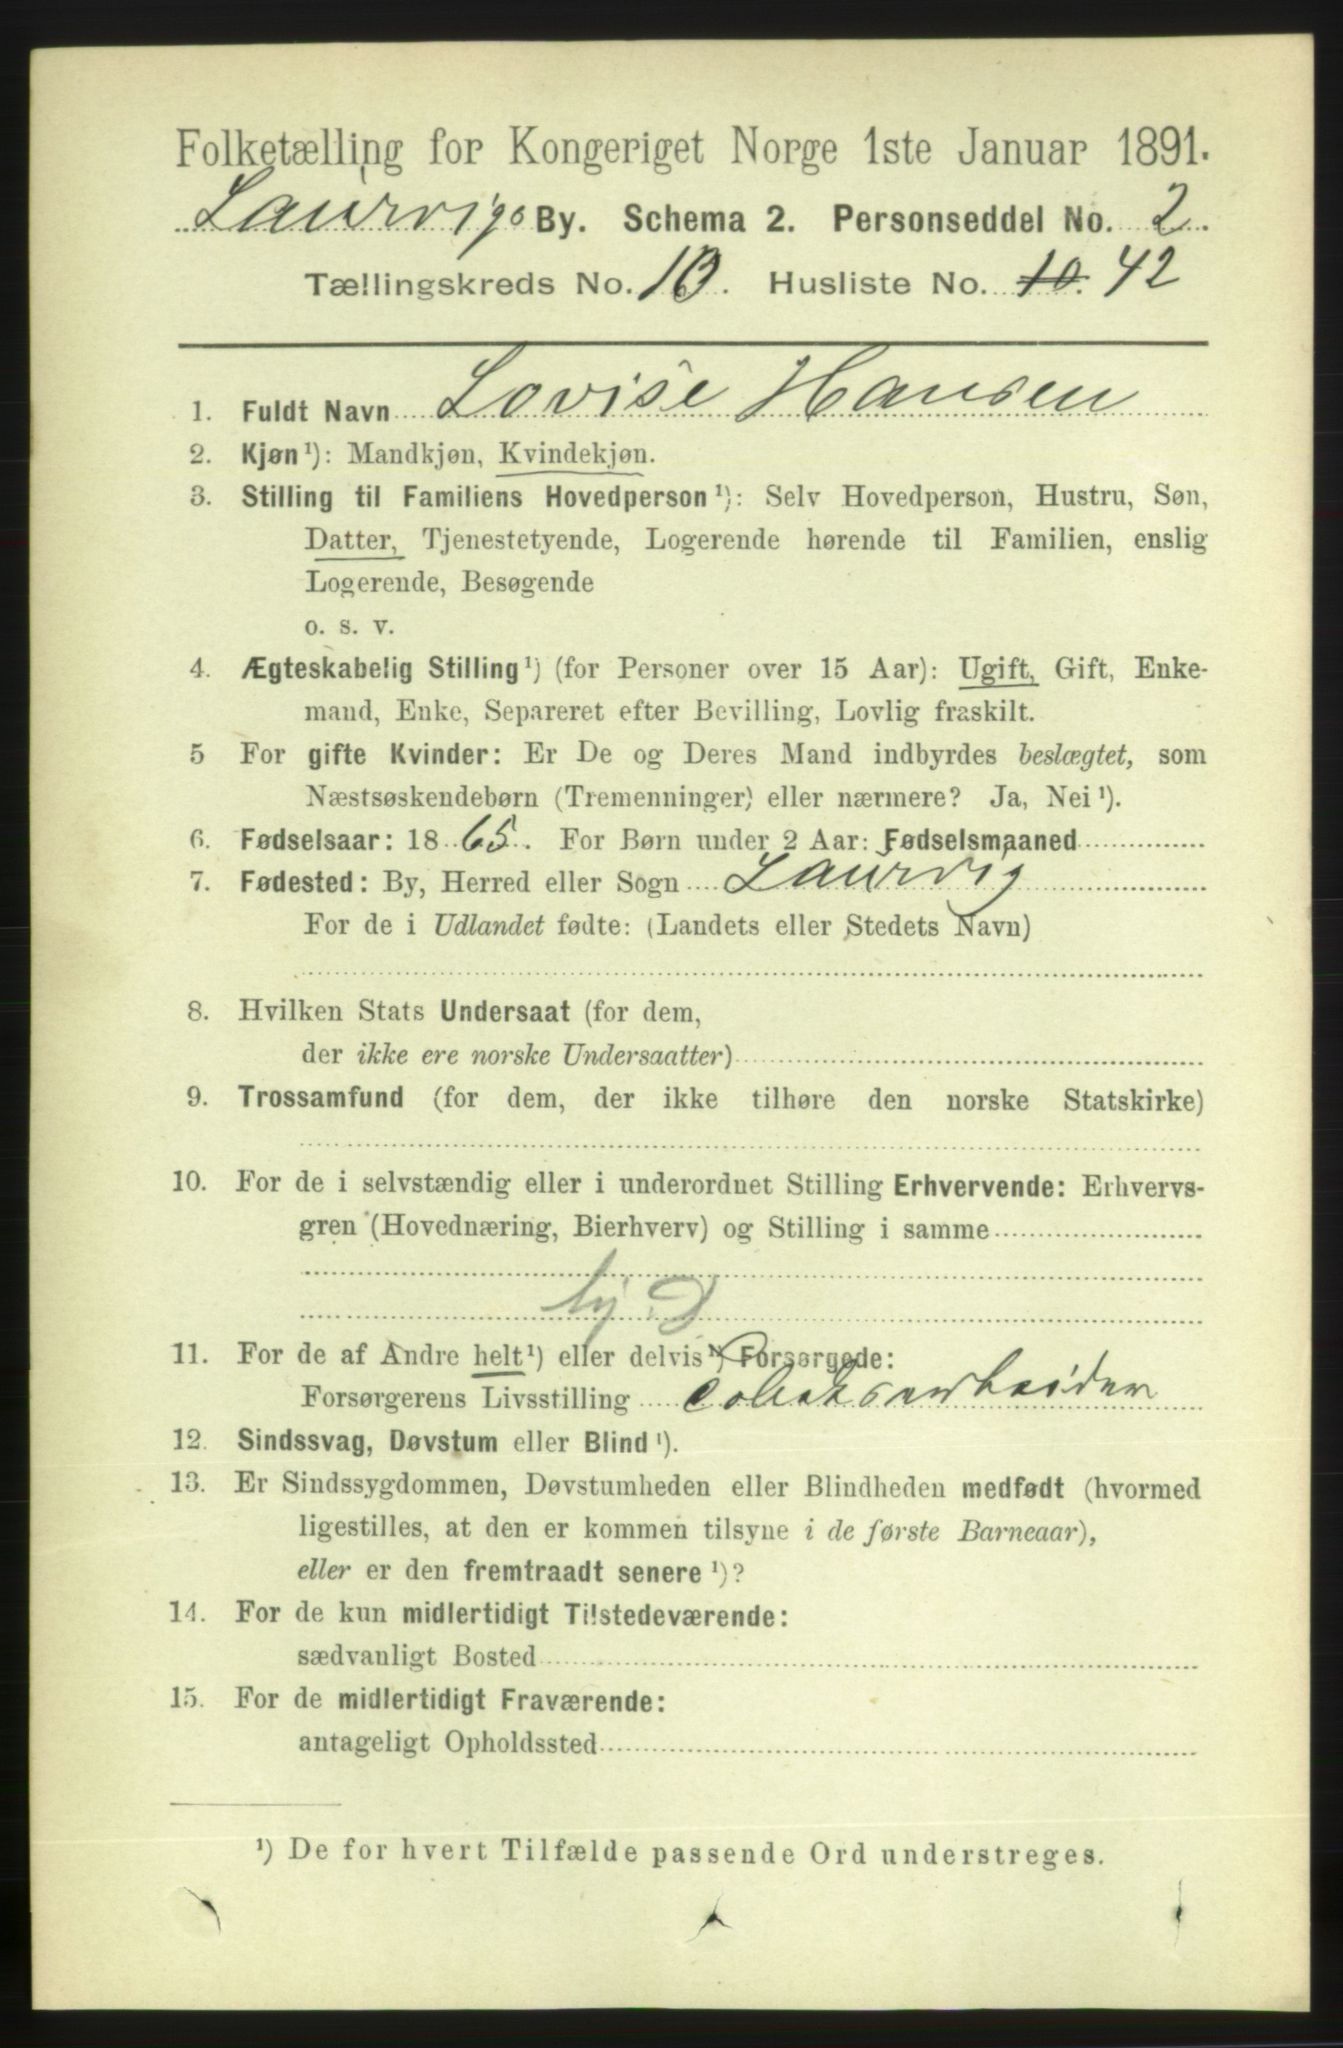 Folketælling for Kongeriget Norge 1ste Januar 1891.
Laurvigs By. Schema 2. Personseddel No. 2.
Tællingskreds No. 10. Husliste No. 10. 42
1. Fuldt Navn Lovise Hansen
2. Kjøn¹): Mandkjøn, Kvindekjøn.
3. Stilling til Familiens Hovedperson¹): Selv Hovedperson, Hustru, Søn,
Datter, Tjenestetyende, Logerende hørende til Familien, enslig
Logerende, Besøgende
o. s. v.
4. Ægteskabelig Stilling¹) (for Personer over 15 Aar): Ugift, Gift, Enke-
mand, Enke, Separeret efter Bevilling, Lovlig fraskilt.
5 For gifte Kvinder: Er De og Deres Mand indbyrdes beslægtet, som
Næstsøskendebørn (Tremenninger) eller nærmere? Ja, Nei¹).
6. Fødselsaar: 1865. For Børn under 2 Aar: Fødselsmaaned
7. Fødested: By, Herred eller Sogn Laurvig
For de i Udlandet fødte: (Landets eller Stedets Navn)
8. Hvilken Stats Undersaat (for dem,
der ikke ere norske Undersaatter)
9. Trossamfund (for dem, der ikke tilhøre den norske Statskirke)
10. For de i selvstændig eller i underordnet Stilling Erhvervende: Erhvervs-
gren (Hovednæring, Bierhverv) og Stilling i samme
11. For de af Andre helt¹) eller delvis¹) Forsørgede:
Forsørgerens Livsstilling
12. Sindssvag, Døvstum eller Blind¹).
13. Er Sindssygdommen, Døvstumheden eller Blindheden medfødt (hvormed
ligestilles, at den er kommen tilsyne i de første Barneaar),
eller er den fremtraadt senere¹)?
14. For de kun midlertidigt Tilstedeværende:
sædvanligt Bosted
15. For de midlertidigt Fraværende:
antageligt Opholdssted
¹) De for hvert Tilfælde passende Ord understreges.